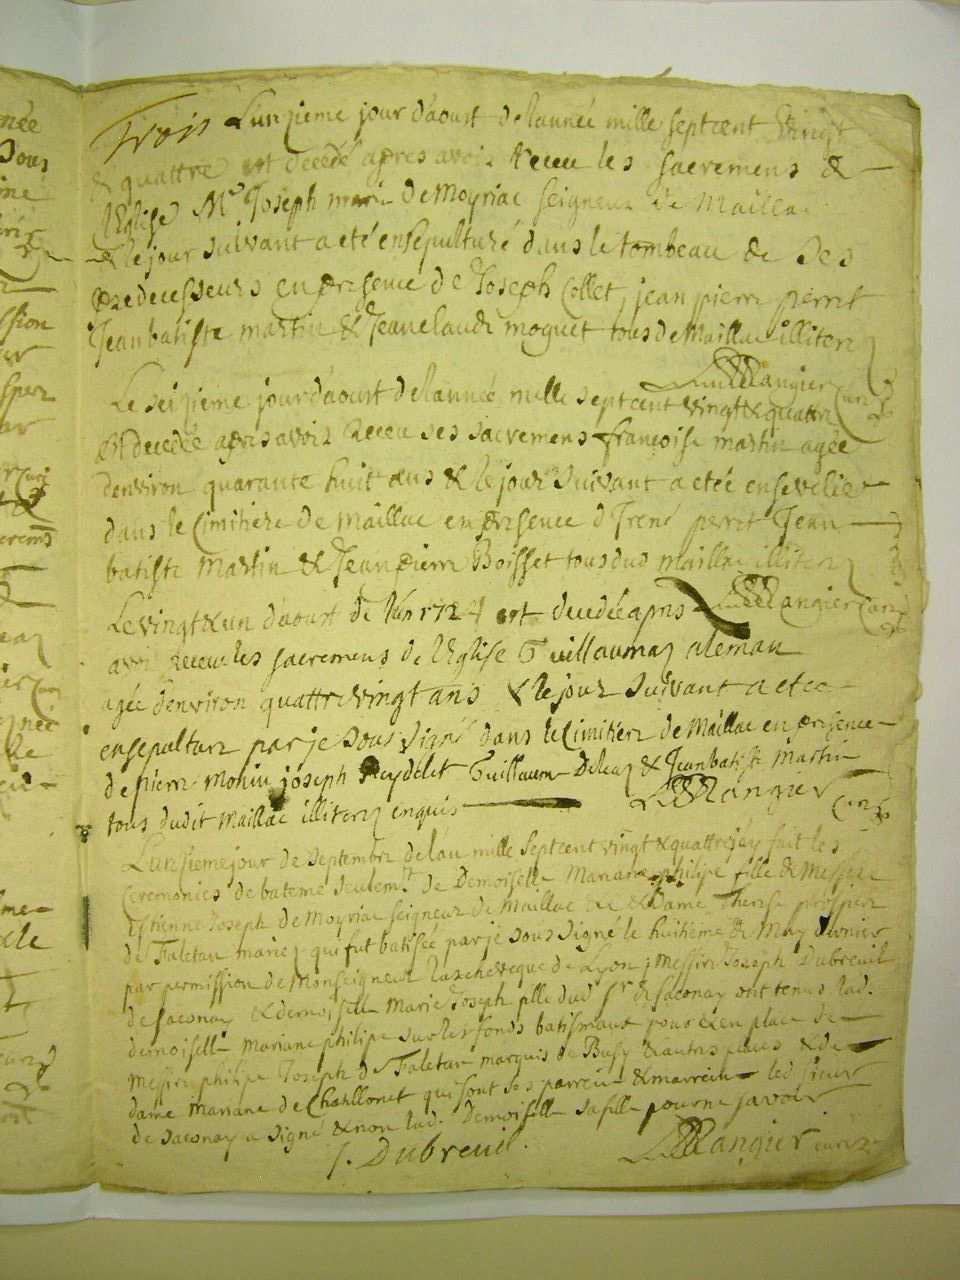 Trois L'unzieme jour daoust de lannée mille septcent vingt
& quattre est decedé apres avoir receu les sacremens de
l'Eglise Mre Joseph marie de Moyriac seigneur de Maillac
& le jour suivant a eté ensepulturé dans le tombeau de ses
predecesseurs en presence de Joseph Collet, jean pierre perret
Jean batiste martin & Jean claude moguet tous de Maillac illiterez
Mangier Curé
Le seizieme jour daoust de lannée mille septcent vingt & quattre
est decedée apres avoir receu ses sacremens françoise martin agée
denviron quarante huit ans & le jour suivant a eté ensevelie
dans le Cimitiere de Maillac en presence d'Irené perret Jean
batiste Martin & Jean pierre Boisset tous dud maillac illiterez
Mangier Curé
Le vingt & un d'aoust de l'an 1724 est decedée apres
avoir receu les sacremens de l'Eglise Guillaumaz aleman
agée d'environ quattre vingt ans & le jour suivant a eté
ensepulturé par je sous signé dans le Cimitiere de Maillac en presence
de pierre monin joseph Reydelet Guillaume Deleaz & Jean batiste Martin
tous dudit Maillac illiterez enquis
Mangier Curé
L'unsieme jour de Septembre de lan mille septcent vingt & quattre jay fait les
Ceremonies de bateme seulemt. de Demoiselle Mariane philipe fille de Messire
Estienne Joseph de Moyriac seigneur de Maillac & & Dame Therese prosper
de Faletan mariez qui fut batisée par je sous signé le huitieme de May dernier
par permission de Monseigneur larcheveque de Lyon, Messire Joseph Dubreuil
de Saconay & demoiselle Marie Joseph fille dud Sr. de Saconay ont tenus lad.
demoiselle Mariane philipe sur les fonds batismaux pour & en place de
Messire philipe Joseph de Faletan marquis de Busy & autres places & de
dame Mariane de Chaillonet qui sont ses parrein & marreine led sieur
de Saconay a signé & non lad. Demoiselle sa fille pour ne savoir
J. Dubreuil. Mangier curé